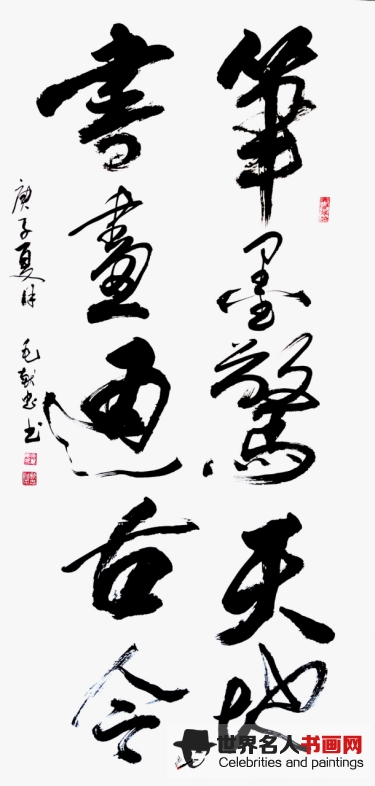 筆墨驚天地
書畫通古今
庚子夏月
世界名人书画网
Celebrities and paintings